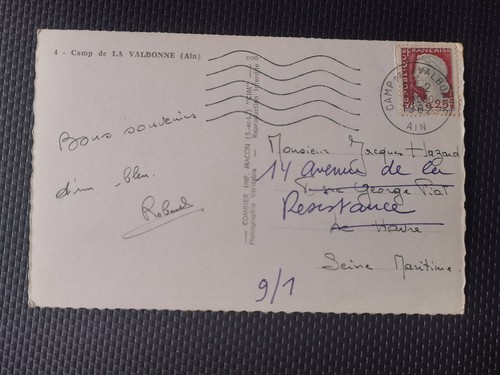 4 - Camp de LA VALBONNE (Ain)
Bons souvenirs
d'un bleu.
Robert
COMBIER IMP. MACON (S.-et-L.) "CIM"
Photographie Véritable - Reproduction interdite
REPUBLIQUE FRANÇAISE
0,25
CAMP DE LA VALBONNE
1962
AIN
Monsieur Jacques Hazard
14 Avenue de la
Rue George Piat
Resistance
Le Havre
Seine Maritime.
9/1